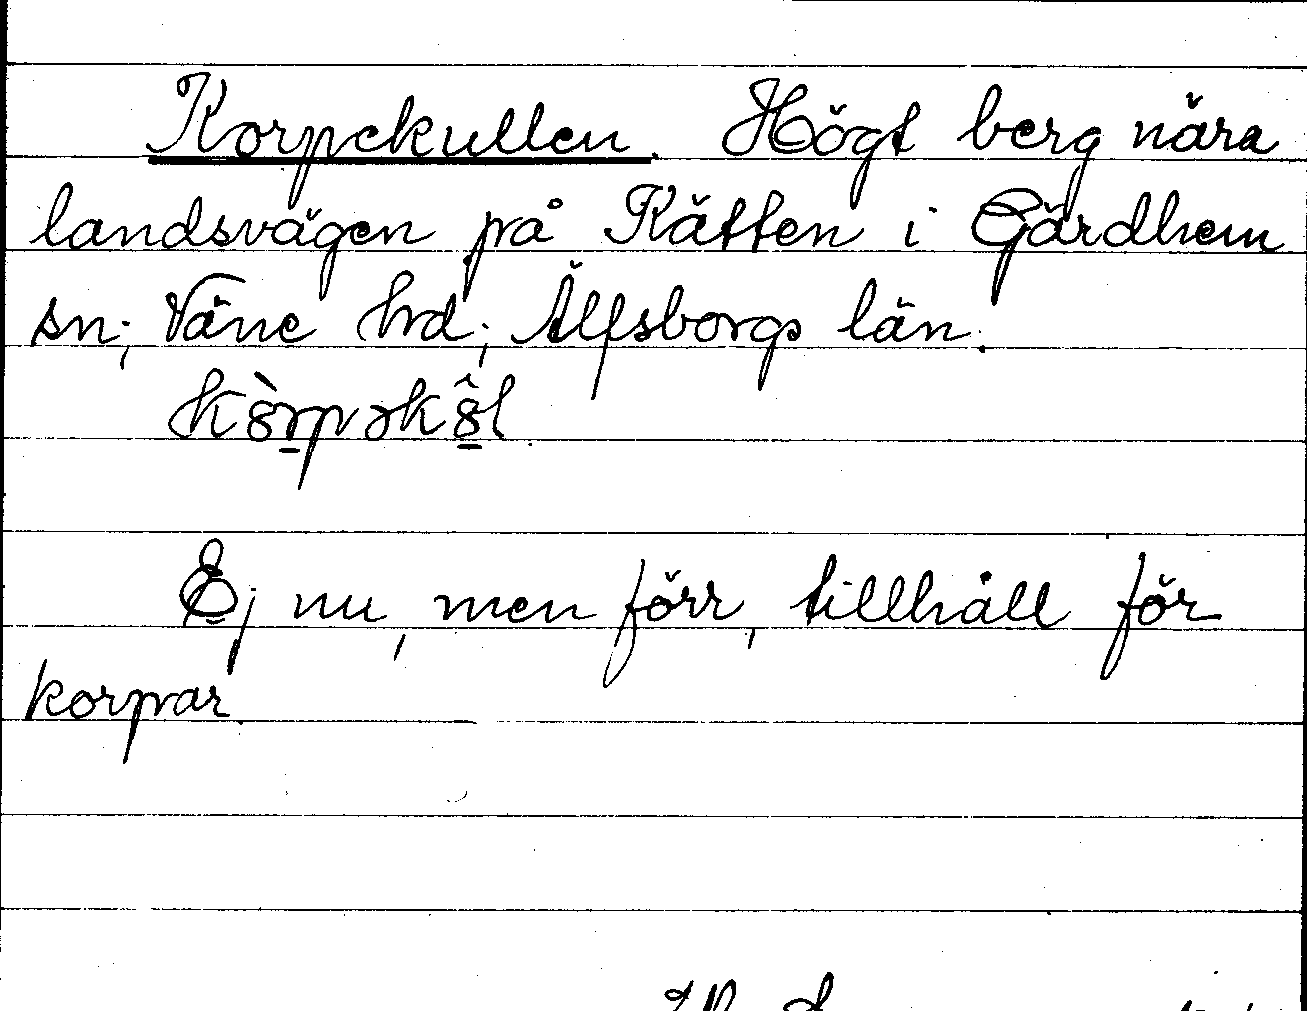 Korpekullen. Högt berg nära
landsvägen på Kätten i Gärdhem
sn; Väne hd; Älfsborgs län.
Ej nu, men förr, tillhåll för
korpar.